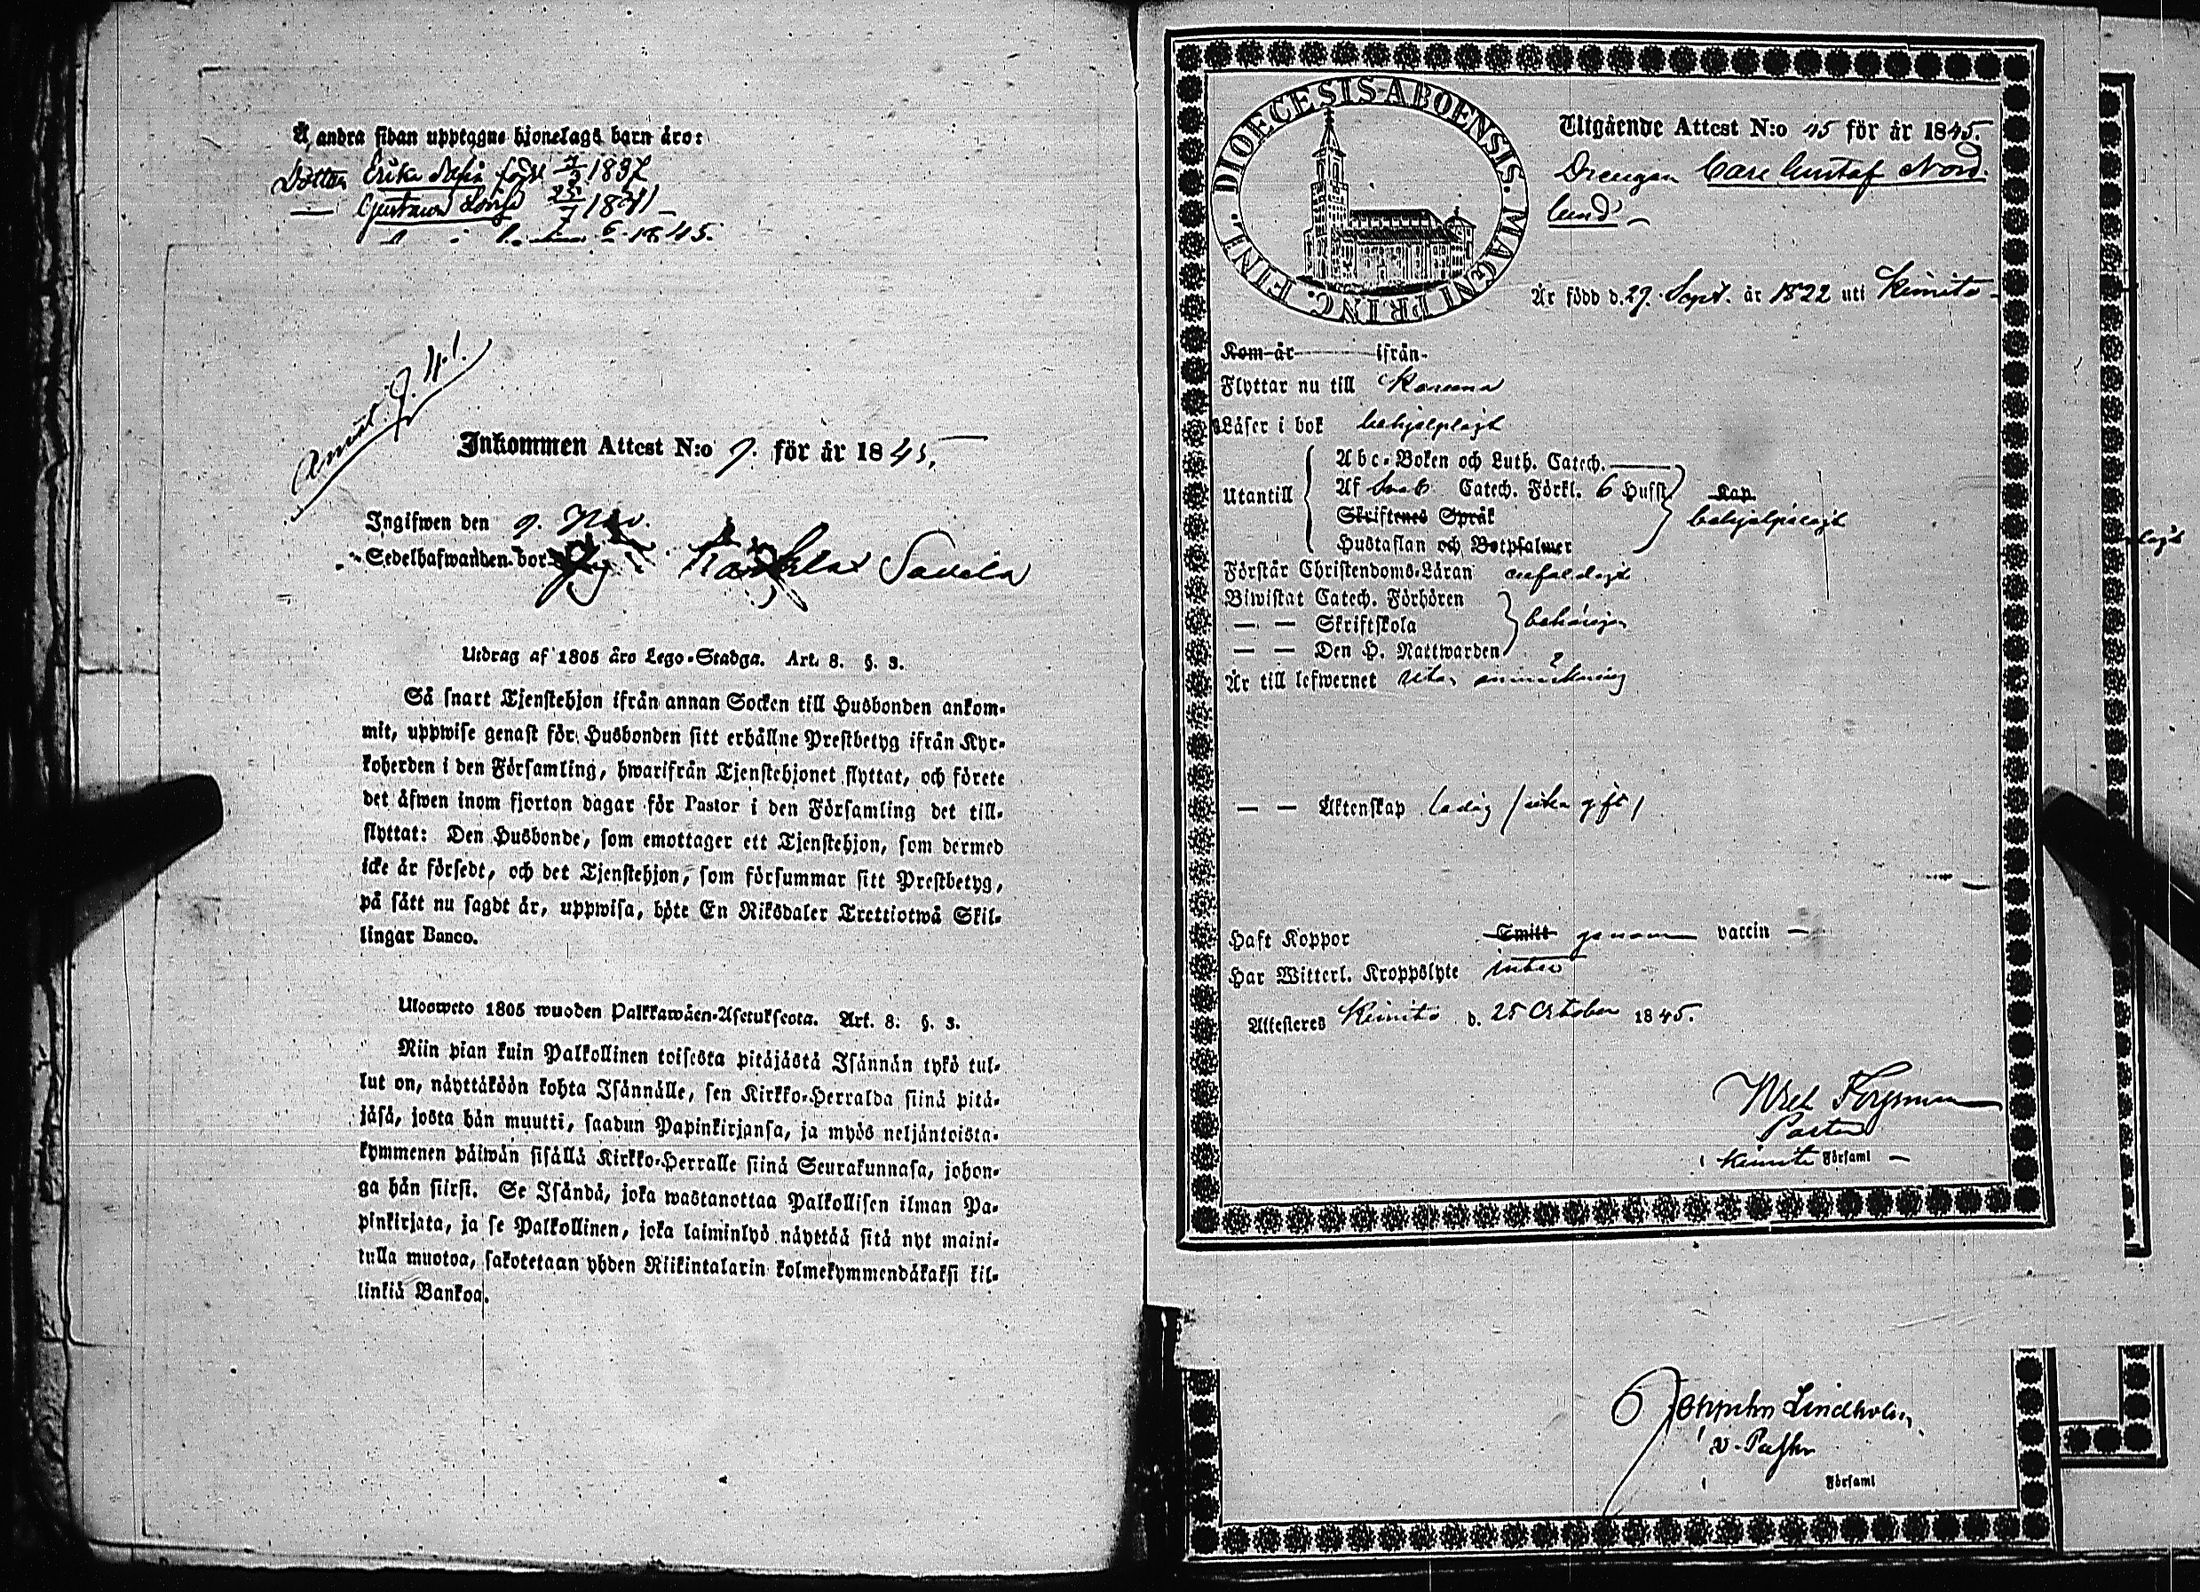 Å andra sidan upptagne hjonelags barn äro:
Dotter Erika Sofia född 7/2 1837
— Gustava Lovisa 25/7 1841 —
1845.
Inkommen Attest N:o 9. för år 1845.
Ingifwen den 9. Nov.
Sedelhafwanden bor Savela
Utdrag af 1805 års Lego-Stadga. Art. 8. §. 3.
Så snart Tjenstehjon ifrån annan Socken till Husbonden ankom-
mit, uppwise genast för Husbonden sitt erhållne Prestbetyg ifrån Kyr-
koherden i den Församling, hwarifrån Tjenstehjonet flyttat, och förete
det äfwen inom fjorton dagar för Pastor i den Församling det till-
flyttat: Den Husbonde, som emottager ett Tjenstehjon, som dermed
icke är försedt, och det Tjenstehjon, som försummar sitt Prestbetyg,
på sätt nu sagdt är, uppwisa, böte En Riksdaler Trettiotwå Skil-
lingar Banco.
Ulosweto 1805 wuoden Palkkawäen-Asetuksesta. Art. 8. §. 3.
Niin pian kuin Palkollinen toisesta pitäjästä Isännän tykö tul-
lut on, näyttäköön kohta Isännälle, sen Kirkko-Herralda siinä pitä-
jäsä, josta hän muutti, saadun Papinkirjansa, ja myös neljäntoista-
kymmenen päiwän sisällä Kirkko-Herralle siinä Seurakunnasa, johon-
ga hän siirsi. Se Isändä, joka wastanottaa Palkollisen ilman Pa-
pinkirjata, ja se Palkollinen, joka laiminlyö näyttää sitä nyt maini-
tulla muotoa, sakotetaan yhden Riikintalarin kolmekymmendäkaksi kil-
linkiä Bankoa.
DIOECESIS ABOENSIS. MAGNI PRINC. FINL.
Utgående Attest N:o 45 för år 1845.
Drengen Carl Gustaf Nord-
lund
Är född d. 29. Sept. år 1822 uti Kimito
Kom år ifrån
Flyttar nu till
Läser i bok behjelpligt
Utantill
Abc-Boken och Luth. Catech.
Af Sveb. Catech. Förkl. 6 Hufst. Kap.
Skriftenes Språk behjelpeligt
Hustaflan och Botpsalmer
Förstår Christendoms-Läran enfaldigt
Biwistat Catech. Förhören
— — Skriftskola behörigen
— — Den H. Nattwarden
Är till lefwernet utan anmärkning
— — Äktenskap ledig / icke gift /
Haft Koppor Smitt genom vaccin —
Har Witterl. Kroppslyte intet
Attesteras Kimito d. 25 October 1845.
Pastor
i Kimito Församl —
Lindholm
v. Pastor
i Församl